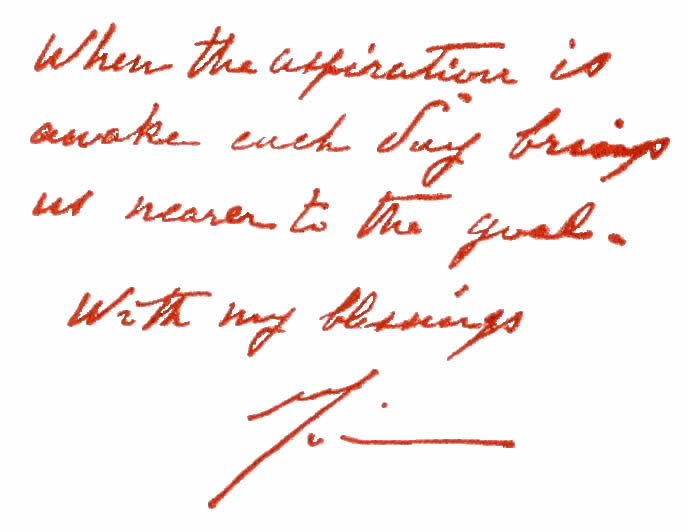 When the aspiration is
awake each day brings
us nearer to the goal.
With my blessings